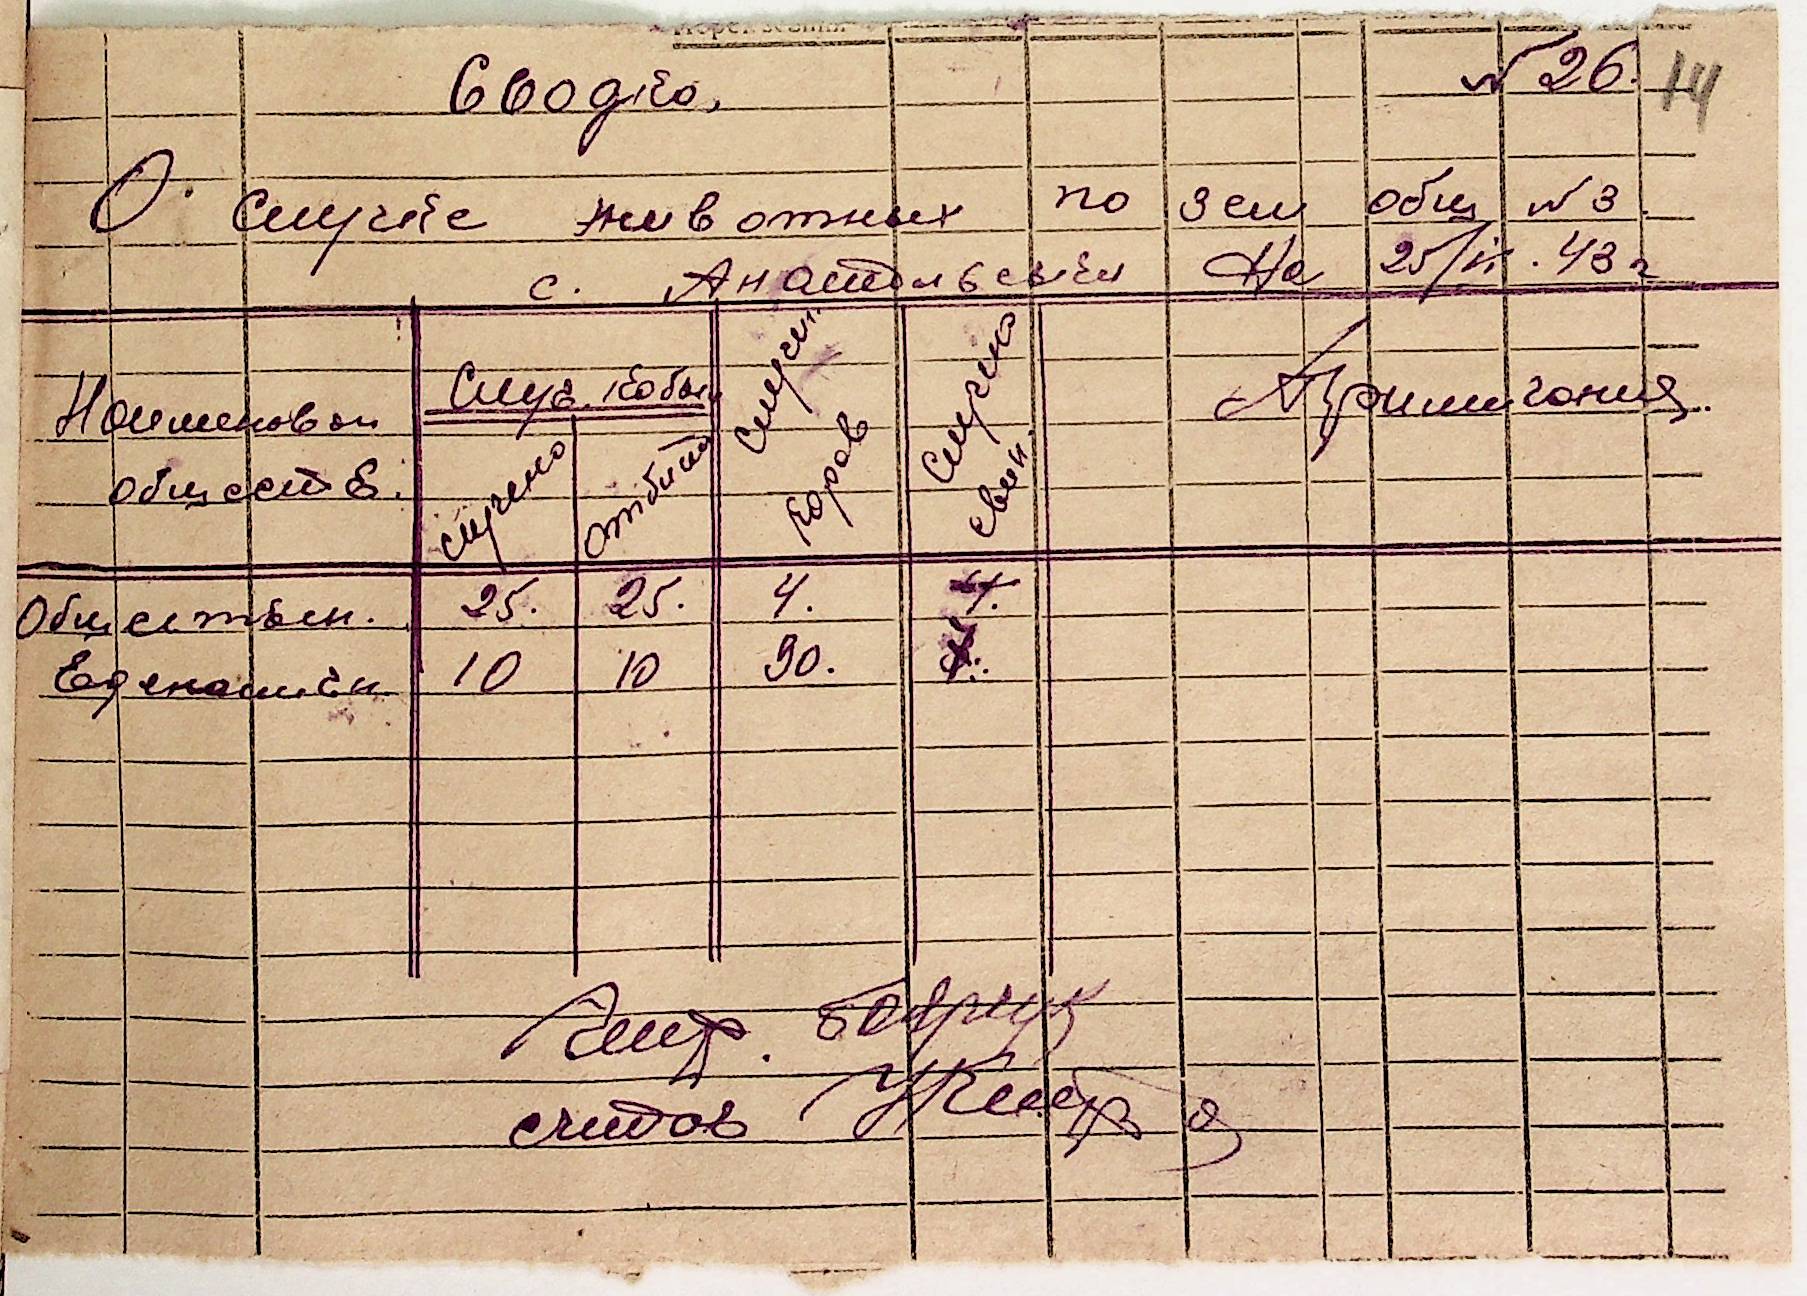 Сводка.
№ 26. 14
О. случке животных по зем общ № 3.
с. Анатольевки На 25/II. 43 г
Наименован обществ.
Случ. кобыл
случено
отбито
Случен. коров
Случено свин.
Примичания.
Общественн. 25. 25. 4. 4.
Еденаличн. 10 10 90.
счетов